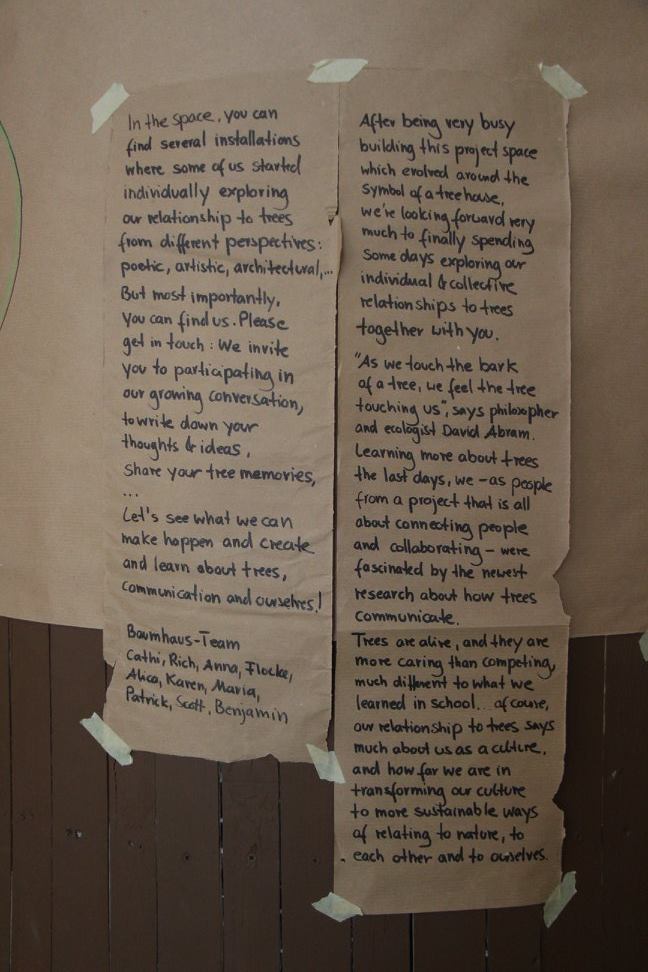 In the space, you can
find several installations
where some of us started
individually exploring
our relationship to trees
from different perspectives:
poetic, artistic, architectural,...
But most importantly,
you can find us. Please
get in touch: We invite
you to participating in
our growing conversation,
to write down your
thoughts & ideas,
share your tree memories,
...
Let's see what we can
make happen and create
and learn about trees,
communication and ourselves!
Baumhaus-Team
Cathi, Rich, Anna, Flocke,
Alica, Karen, Maria,
Patrick, Scott, Benjamin
After being very busy
building this project space
which evolved around the
symbol of a treehouse,
we're looking forward very
much to finally spending
some days exploring our
individual & collective
relationships to trees
together with you.
"As we touch the bark
of a tree, we feel the tree
touching us", says philosopher
and ecologist David Abram.
Learning more about trees
the last days, we - as people
from a project that is all
about connecting people
and collaborating - were
fascinated by the newest
research about how trees
communicate.
Trees are alive, and they are
more caring than competing,
much different to what we
learned in school... of course,
our relationship to trees says
much about us as a culture,
and how far we are in
transforming our culture
to more sustainable ways
of relating to nature, to
each other and to ourselves.